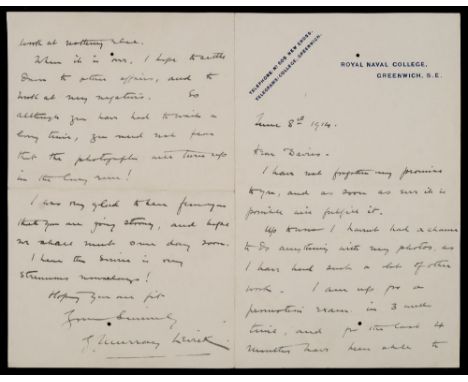 TELEPHONE Nº 608 NEW CROSS.
TELEGRAMS: COLLEGE, GREENWICH.
ROYAL NAVAL COLLEGE,
GREENWICH, S.E.
June 8th 1914.
Dear Davies.
I have not forgotten my promise
to you, and as soon as ever it is
possible will fulfil it.
Up to now I haven't had a chance
to do anything with my photos, as
I have had such a lot of other
work. I am up for a
promotion exam. in 3 weeks
time, and for the last 4
months have been able to
work at nothing else.
When it is over, I hope to settle
down to other affairs, and to
look at my negatives. So
although you have had to wait a
long time, you need not fear
that the photographs will turn up
in the long run!
I was very glad to hear from you
that you are going strong, and hope
we shall meet some day soon.
I hear the is very
strenuous nowadays!
Hoping you are fit
Yours Sincerely
G. Murray Levick.